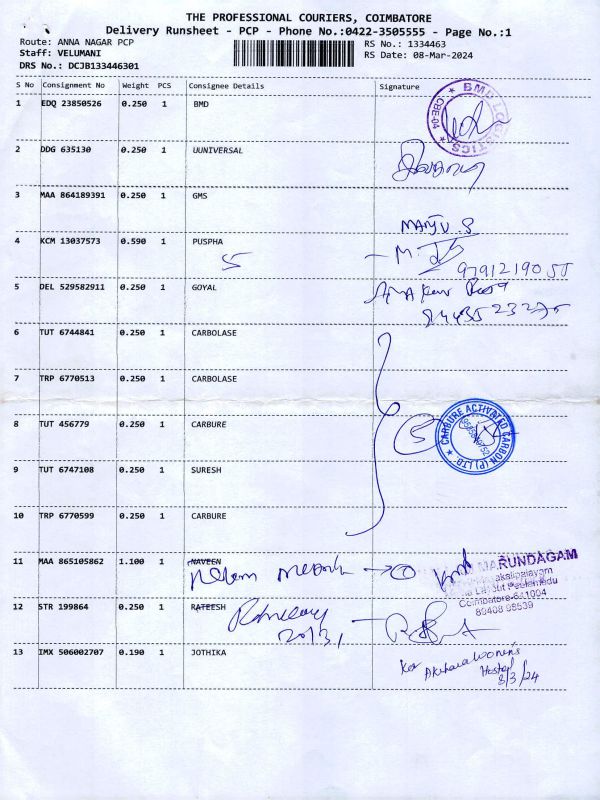 THE PROFESSIONAL COURIERS, COIMBATORE
Delivery Runsheet - PCP - Phone No.:0422-3505555 - Page No.:1
Route: ANNA NAGAR PCP
Staff: VELUMANI
DRS No.: DCJB133446301
RS No.: 1334463
RS Date: 08-Mar-2024
S No Consignment No Weight PCS Consignee Details Signature
1 EDQ 23850526 0.250 1 BMD
BMD LOGISTICS
* CBE-04 *
2 DDG 635130 0.250 1 UUNIVERSAL
3 MAA 864189391 0.250 1 GMS
MANJU. S
4 KCM 13037573 0.590 1 PUSPHA
5
9791219055
5 DEL 529582911 0.250 1 GOYAL
6 TUT 6744841 0.250 1 CARBOLASE
7 TRP 6770513 0.250 1 CARBOLASE
8 TUT 456779 0.250 1 CARBURE
5
CARBURE ACTIVATED CARBON (P) LTD.
9 TUT 6747108 0.250 1 SURESH
10 TRP 6770599 0.250 1 CARBURE
11 MAA 865105862 1.100 1 NAVEEN
MARUNDAGAM
Coimbatore-641004
89408 98539
12 STR 199864 0.250 1 RATEESH
13 IMX 506002707 0.190 1 JOTHIKA
Women's
Hostel
8/3/24